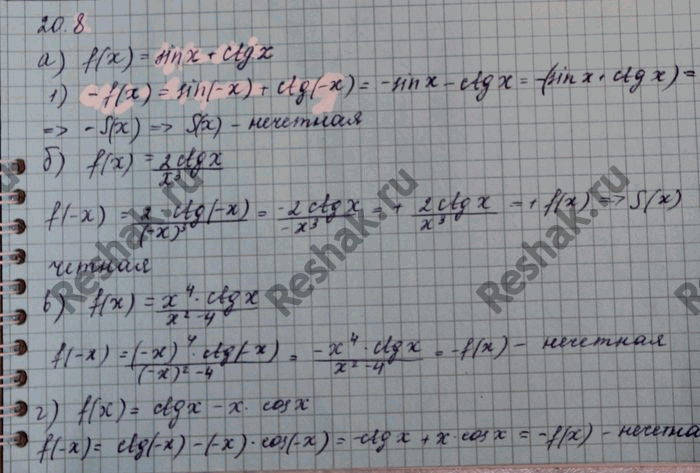 20.8.
а) f(x) = sin x + ctg x
1) -f(x) = sin(-x) + ctg(-x) = -sin x - ctg x = -(sin x + ctg x) =
=> -f(x) => f(x) - нечетная
б) f(x) = 2 ctg x / x³
f(-x) = 2 · ctg(-x) / (-x)³ = -2 ctg x / -x³ = + 2 ctg x / x³ = + f(x) => f(x)
четная
в) f(x) = x⁴ · ctg x / x² - 4
f(-x) = (-x)⁴ · ctg(-x) / (-x)² - 4 = -x⁴ · ctg x / x² - 4 = -f(x) - нечетная
г) f(x) = ctg x - x · cos x
f(-x) = ctg(-x) - (-x) · cos(-x) = -ctg x + x · cos x = -f(x) - нечетна
Reshak.ru
Reshak.ru
Reshak.ru